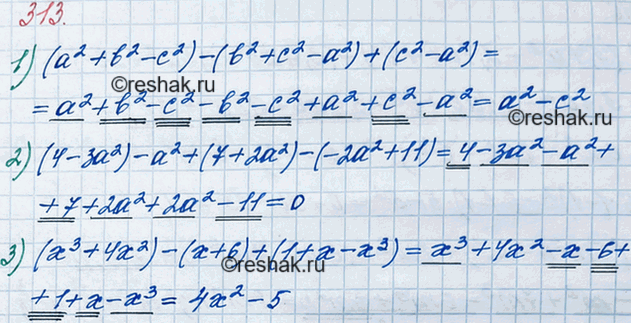 313.
1) (a² + b² - c²) - (b² + c² - a²) + (c² - a²) =
= a² + b² - c² - b² - c² + a² + c² - a² = a² - c²
©reshak.ru
©reshak.ru
2) (4 - 3a²) - a² + (7 + 2a²) - (-2a² + 11) = 4 - 3a² - a² +
+ 7 + 2a² + 2a² - 11 = 0
3) (x³ + 4x²) - (x + 6) + (1 + x - x³) = x³ + 4x² - x - 6 +
©reshak.ru
+ 1 + x - x³ = 4x² - 5